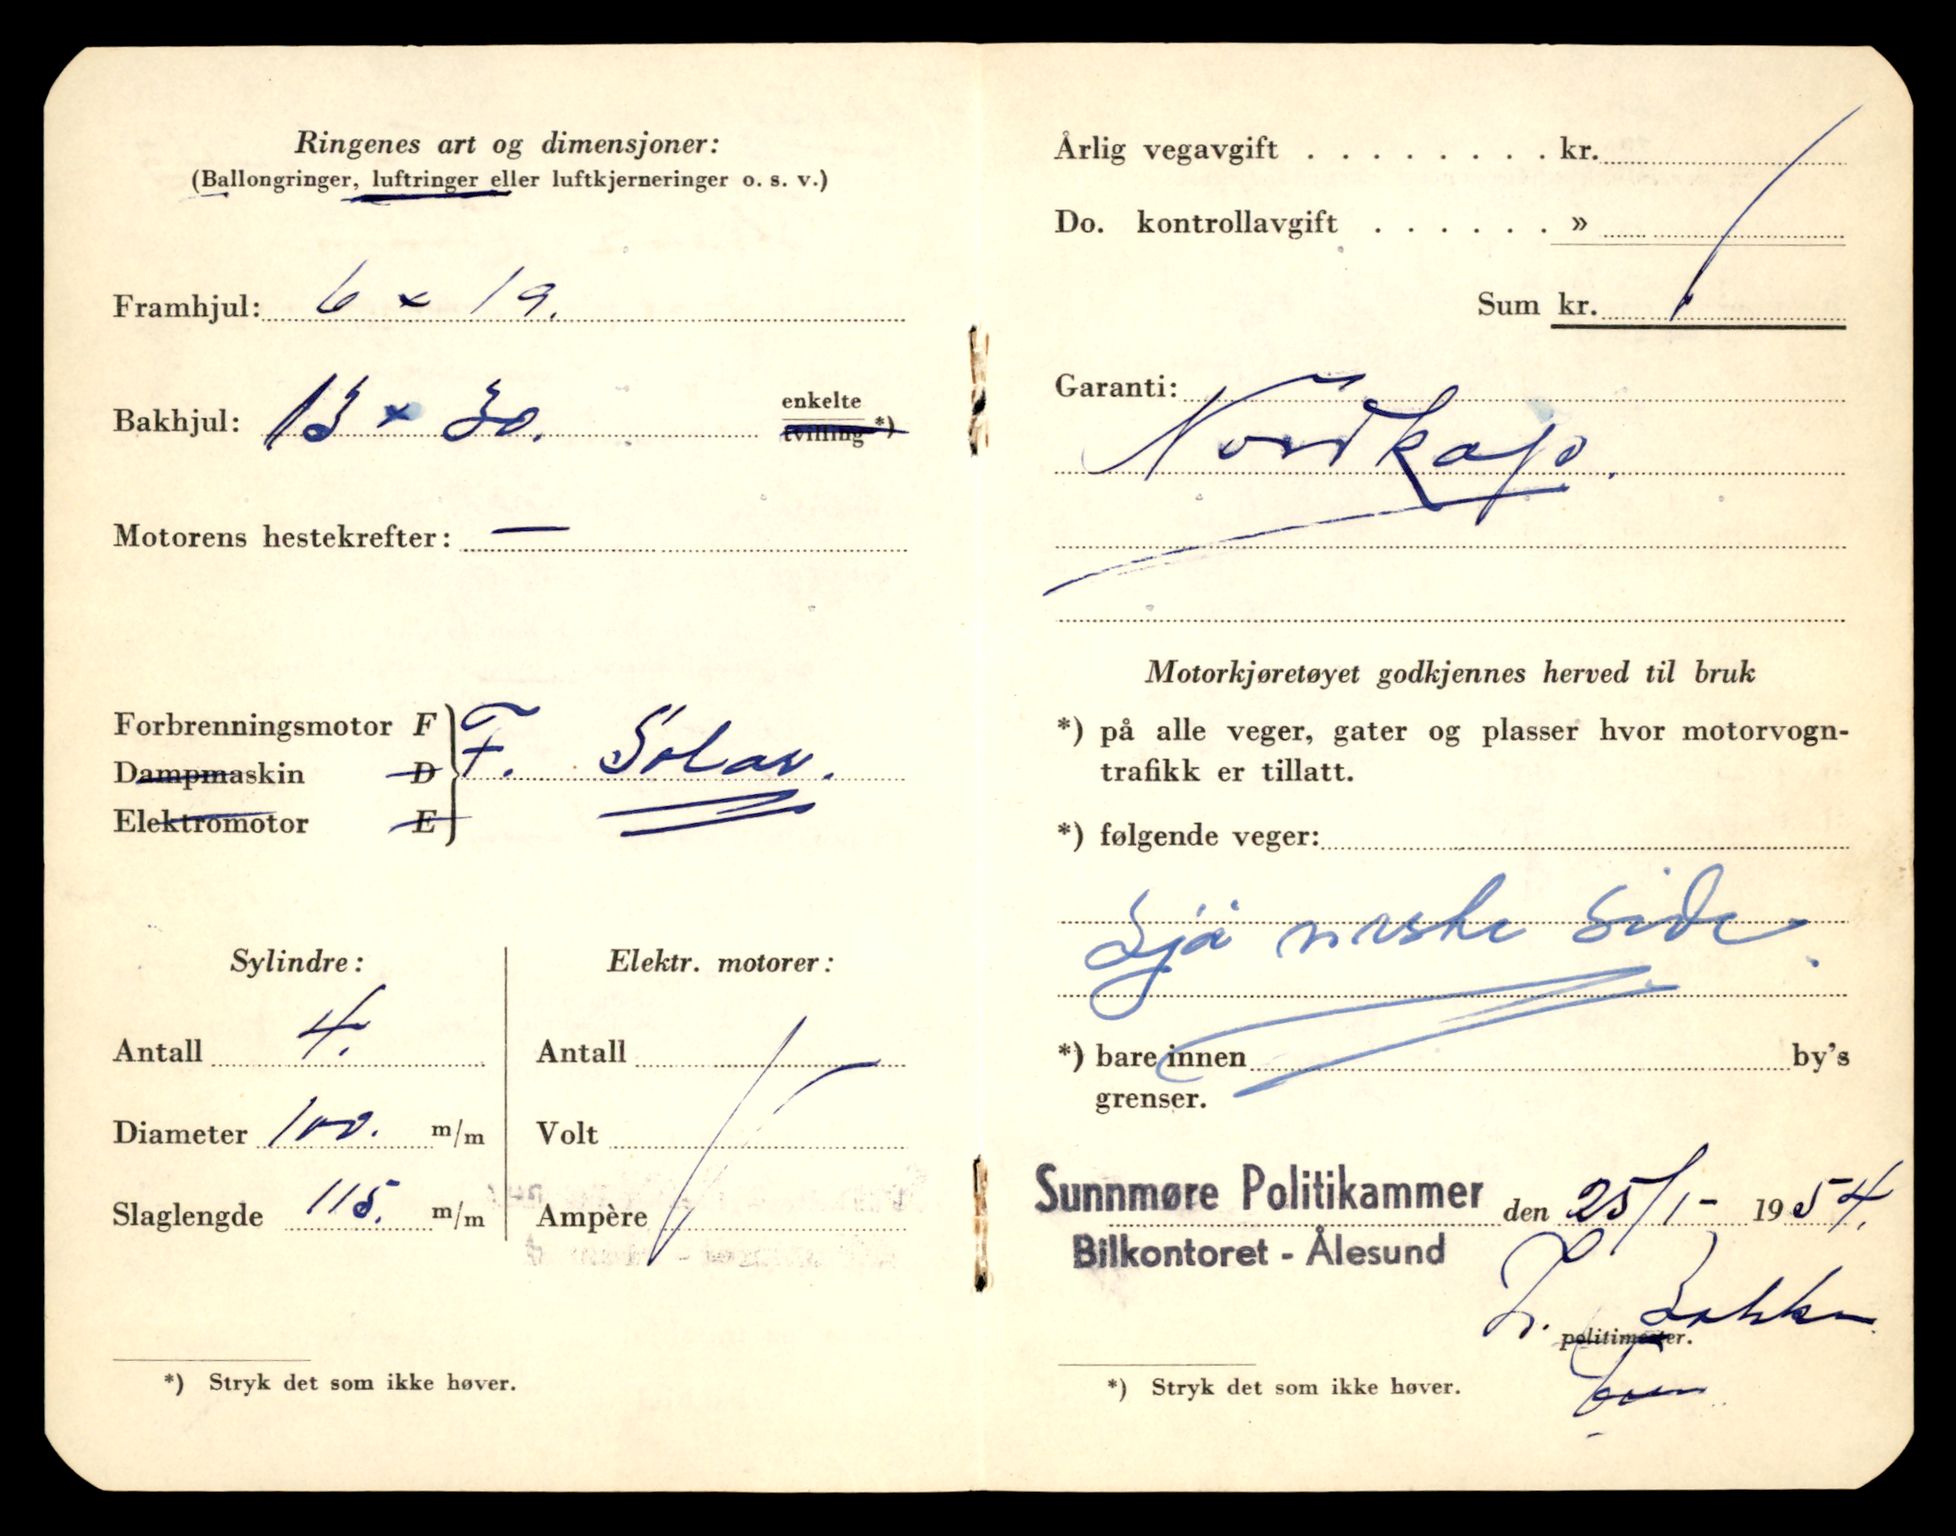 Ringenes art og dimensjoner:
(Ballongringer, luftringer eller luftkjerneringer o. s. v.)
Framhjul: 6 × 19.
Bakhjul: 13 × 30. enkelte
tvilling *)
Motorens hestekrefter: —
Forbrenningsmotor F
Dampmaskin D
Elektromotor E
F. Solar.
Sylindre:
Antall 4.
Diameter 100. m/m
Slaglengde 115. m/m
Elektr. motorer:
Antall
Volt
Ampère
*) Stryk det som ikke høver.
Årlig vegavgift . . . . . . . . kr.
Do. kontrollavgift . . . . . . »
Sum kr.
Garanti:
Nordkap.
Motorkjøretøyet godkjennes herved til bruk
*) på alle veger, gater og plasser hvor motorvogn-
trafikk er tillatt.
*) følgende veger:
Sjå neste side.
*) bare innen by's
grenser.
Sunnmøre Politikammer den 25/1- 1954.
Bilkontoret - Ålesund
politimester.
*) Stryk det som ikke høver.